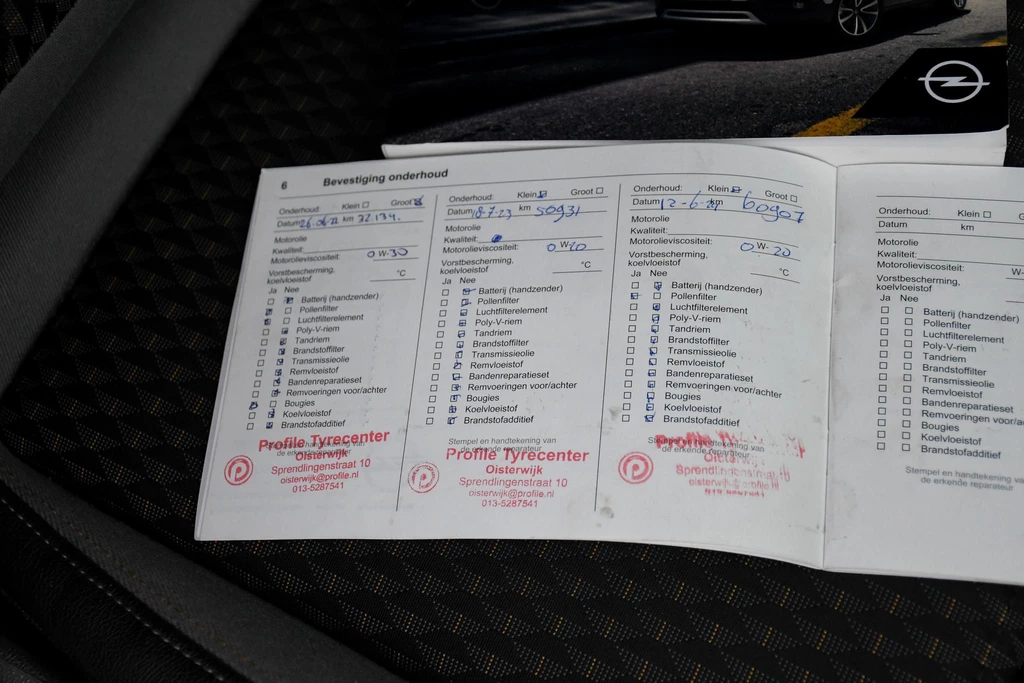 6 Bevestiging onderhoud
Onderhoud: Klein Groot
Datum 26-06-22 km 32.134.
Motorolie
Kwaliteit:
Motorolieviscositeit: 0 W-30
Vorstbescherming,
koelvloeistof °C
Ja Nee
Batterij (handzender)
Pollenfilter
Luchtfilterelement
Poly-V-riem
Tandriem
Brandstoffilter
Transmissieolie
Remvloeistof
Bandenreparatieset
Remvoeringen voor/achter
Bougies
Koelvloeistof
Brandstofadditief
Profile Tyrecenter
Oisterwijk
Sprendlingenstraat 10
oisterwijk@profile.nl
013-5287541
Onderhoud: Klein Groot
Datum 18-7-23 km 50931
Motorolie
Kwaliteit:
Motorolieviscositeit: 0 W-20
Vorstbescherming,
koelvloeistof °C
Ja Nee
Batterij (handzender)
Pollenfilter
Luchtfilterelement
Poly-V-riem
Tandriem
Brandstoffilter
Transmissieolie
Remvloeistof
Bandenreparatieset
Remvoeringen voor/achter
Bougies
Koelvloeistof
Brandstofadditief
Stempel en handtekening van
de erkende reparateur
Profile Tyrecenter
Oisterwijk
Sprendlingenstraat 10
oisterwijk@profile.nl
013-5287541
Onderhoud: Klein Groot
Datum 12-6-24 km 60907
Motorolie
Kwaliteit:
Motorolieviscositeit: 0 W-20
Vorstbescherming,
koelvloeistof °C
Ja Nee
Batterij (handzender)
Pollenfilter
Luchtfilterelement
Poly-V-riem
Tandriem
Brandstoffilter
Transmissieolie
Remvloeistof
Bandenreparatieset
Remvoeringen voor/achter
Bougies
Koelvloeistof
Brandstofadditief
Profile
Oisterwijk
Sprendlingenstraat 10
oisterwijk@profile.nl
Onderhoud: Klein
Datum km
Motorolie
Kwaliteit:
Motorolieviscositeit: W-
Vorstbescherming,
koelvloeistof
Ja Nee
Batterij (handzender)
Pollenfilter
Luchtfilterelement
Poly-V-riem
Tandriem
Brandstoffilter
Transmissieolie
Remvloeistof
Bandenreparatieset
Remvoeringen voor/a
Bougies
Koelvloeistof
Brandstofadditief
Stempel en handtekening va
de erkende reparateur